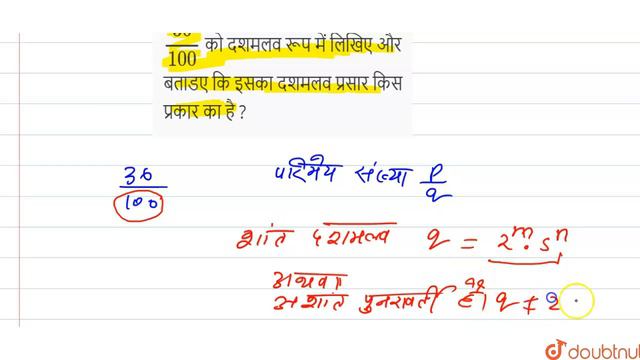 100 को दशमलव रूप में लिखिए और
बताडए कि इसका दशमलव प्रसार किस
प्रकार का है ?
36
100
परिमेय संख्या p/q
शांत दशमलव q = 2^m . 5^n
अथवा
अशांत पुनरावर्ती हो q ≠ 2
doubtnut